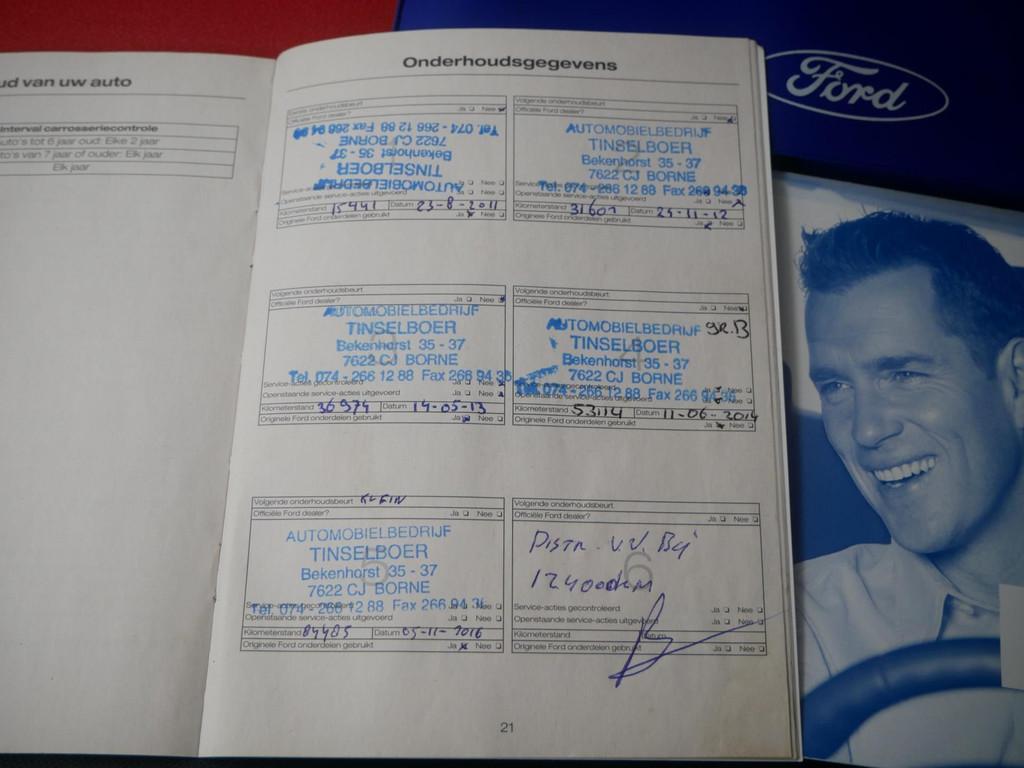 ud van uw auto
Interval carrosseriecontrole
auto's tot 6 jaar oud: Elke 2 jaar
to's van 7 jaar of ouder: Elk jaar
Elk jaar
Onderhoudsgegevens
Volgende onderhoudsbeurt
Officiële Ford dealer? Ja Nee
AUTOMOBIELBEDRIJF
TINSELBOER
Bekenhorst 35 - 37
7622 CJ BORNE
Tel. 074 - 266 12 88 Fax 266 94
Openstaande service-acties uitgevoerd Ja Nee
Kilometerstand 15441 Datum 23-8-2011
Originele Ford onderdelen gebruikt Ja Nee
Volgende onderhoudsbeurt
Officiële Ford dealer? Ja Nee
AUTOMOBIELBEDRIJF
TINSELBOER
Bekenhorst 35 - 37
7622 CJ BORNE
Tel. 074 - 266 12 88 Fax 266 94 36
Openstaande service-acties uitgevoerd Ja Nee
Kilometerstand 31601 Datum 29-11-12
Originele Ford onderdelen gebruikt Ja Nee
Volgende onderhoudsbeurt
Officiële Ford dealer? Ja Nee
3
AUTOMOBIELBEDRIJF
TINSELBOER
Bekenhorst 35 - 37
7622 CJ BORNE
Tel. 074 - 266 12 88 Fax 266 94 36
Service-acties gecontroleerd Ja Nee
Openstaande service-acties uitgevoerd Ja Nee
Kilometerstand 36974 Datum 14-05-13
Originele Ford onderdelen gebruikt Ja Nee
Volgende onderhoudsbeurt
Officiële Ford dealer? Ja Nee
4
AUTOMOBIELBEDRIJF gr.B
TINSELBOER
Bekenhorst 35 - 37
7622 CJ BORNE
Tel. 074 - 266 12 88 Fax 266 94 36
Openstaande service-acties uitgevoerd Ja Nee
Kilometerstand 53114 Datum 11-06-2014
Originele Ford onderdelen gebruikt Ja Nee
Volgende onderhoudsbeurt KLEIN
Officiële Ford dealer? Ja Nee
5
AUTOMOBIELBEDRIJF
TINSELBOER
Bekenhorst 35 - 37
7622 CJ BORNE
Tel. 074 - 266 12 88 Fax 266 94 36
Service-acties gecontroleerd Ja Nee
Openstaande service-acties uitgevoerd Ja Nee
Kilometerstand 84485 Datum 05-11-2016
Originele Ford onderdelen gebruikt Ja Nee
Volgende onderhoudsbeurt
Officiële Ford dealer? Ja Nee
6
Distr. VV. Bij
124000km
Service-acties gecontroleerd Ja Nee
Openstaande service-acties uitgevoerd Ja Nee
Kilometerstand Datum
Originele Ford onderdelen gebruikt Ja Nee
21
Ford